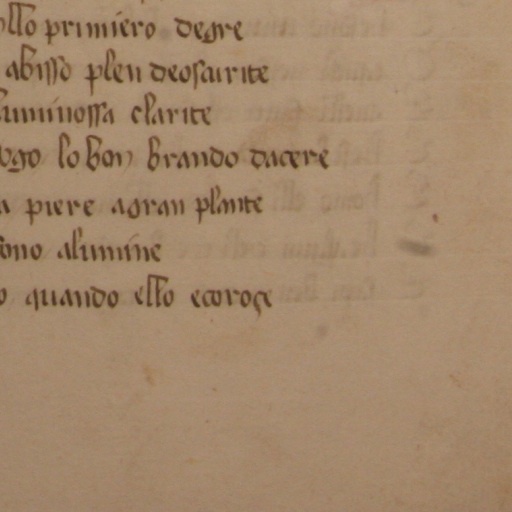 ollo primiero degre
abisso plen deoscurite
luminossa clarite
ogo lo bon brando dacere
a piere agran plante
ono alumine
o quando ello ecoroçe